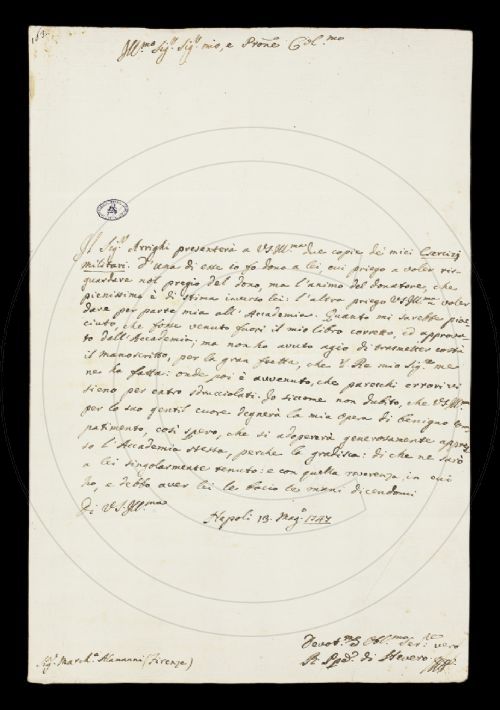 Ill.mo Sig.r Sig.r mio, e Prone Col.mo
Il Sig.r Arrighi presenterà a VS. Ill.ma due copie dei miei Esercizj
militari. D'una di esse io fo dono a lei, cui priego a voler ris-
guardare nol pregio del dono, ma l'animo del donatore, che
pienissimo è di stima inverso lei: l'altro priego VS. Ill.ma voler
dare per parte mia all'Accademia. Quanto mi sarebbe pia-
ciuto che fosse venuto fuori il mio libro corretto, ed approva-
to dall'Accademia; ma non ho avuto agio di trasmetter costà
il manoscritto, per la gran fretta, che il Re mio Sig.re me
ne ha fatta: onde poi è avvenuto, che parecchi errori vi
sieno per entro sdrucciolati. Io siccome non dubito, che VS. Ill.ma
per lo suo gentil cuore degnerà la mia opera di benigno com-
patimento, così spero, che si adopererà generosamente appres-
so l'Accademia stessa, perche la gradisca: di che ne sarò
a lei singolarmente tenuto: e con quella riverenza, in cui
ho, e debbo aver lei le bacio le mani dicendomi
Di VS. Ill.ma
Napoli 13. Mag.o 1747
Devot.mo ed Obl.mo Ser.re vero
Il Pp.e di Severo
Sig.r March.e Alamanni (Firenze)